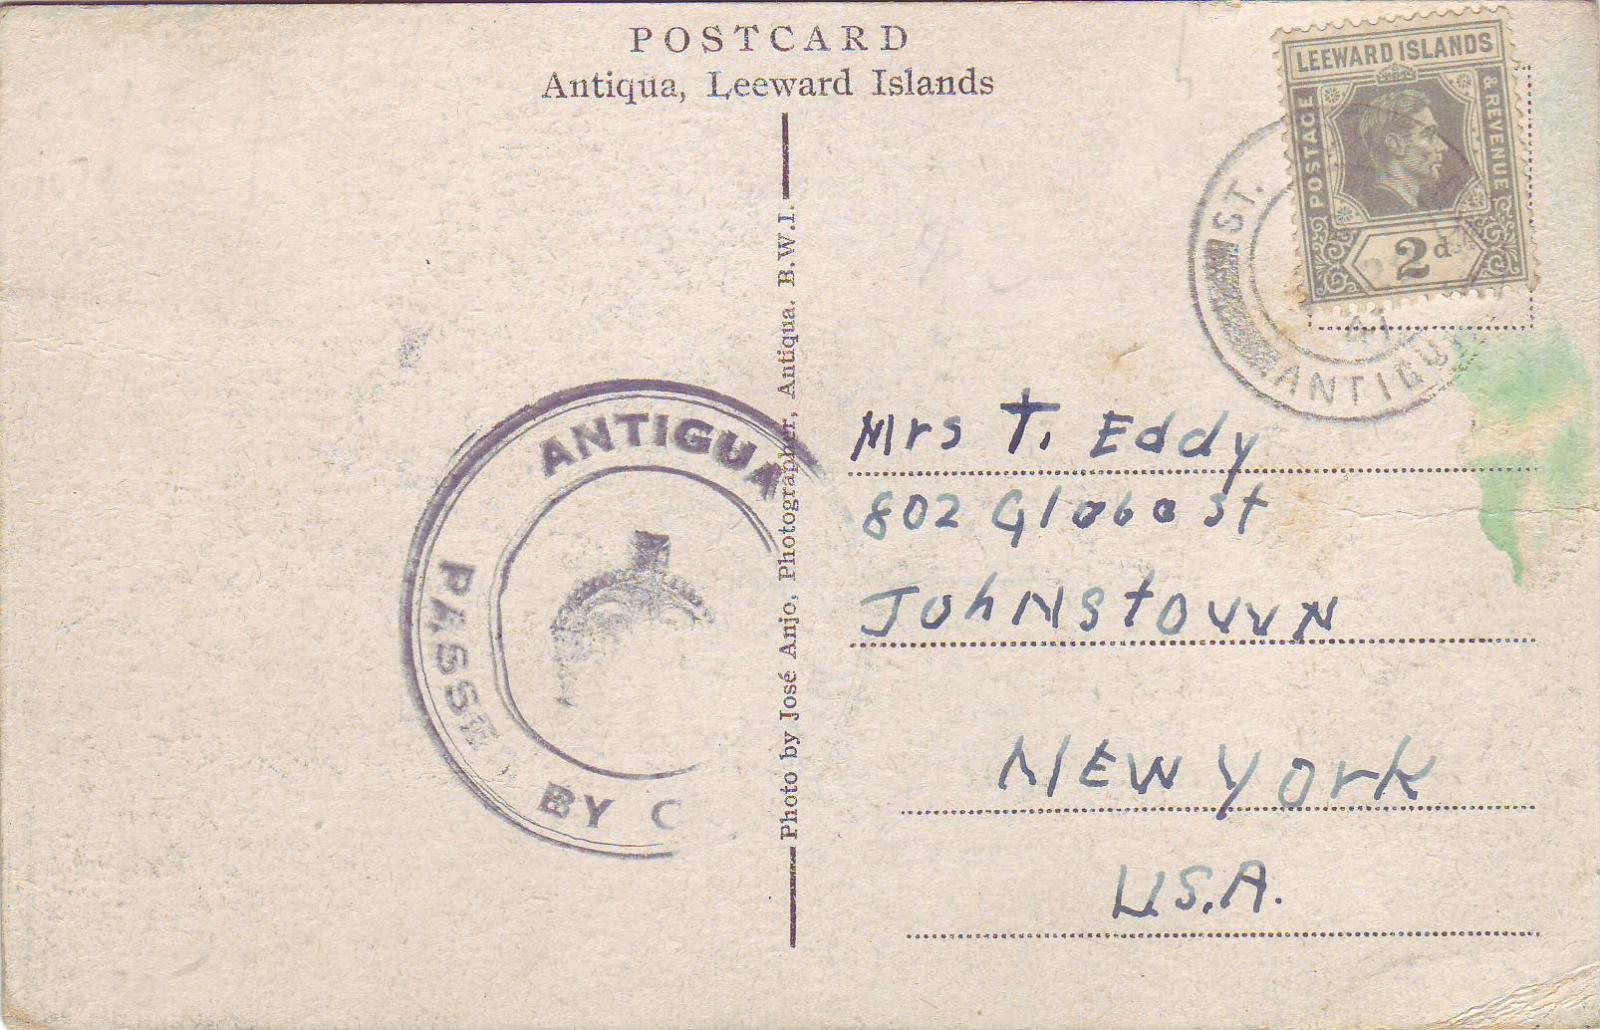 POSTCARD
Antiqua, Leeward Islands
LEEWARD ISLANDS
POSTAGE
& REVENUE
2d
ST.
41
ANTIGUA
ANTIGUA
PASSED
BY C
Photo by José Anjo, Photographer, Antiqua. B.W.I.
Mrs T. Eddy
802 Globe St
Johnstown
New York
U.S.A.